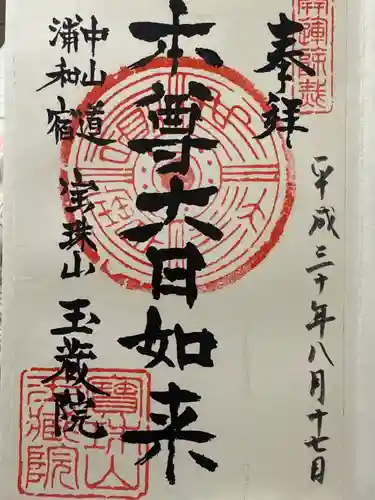 奉拝
平成三十年八月十七日
本尊大日如来
中山道
浦和宿
宝珠山 玉蔵院
寶珠山
玉藏院